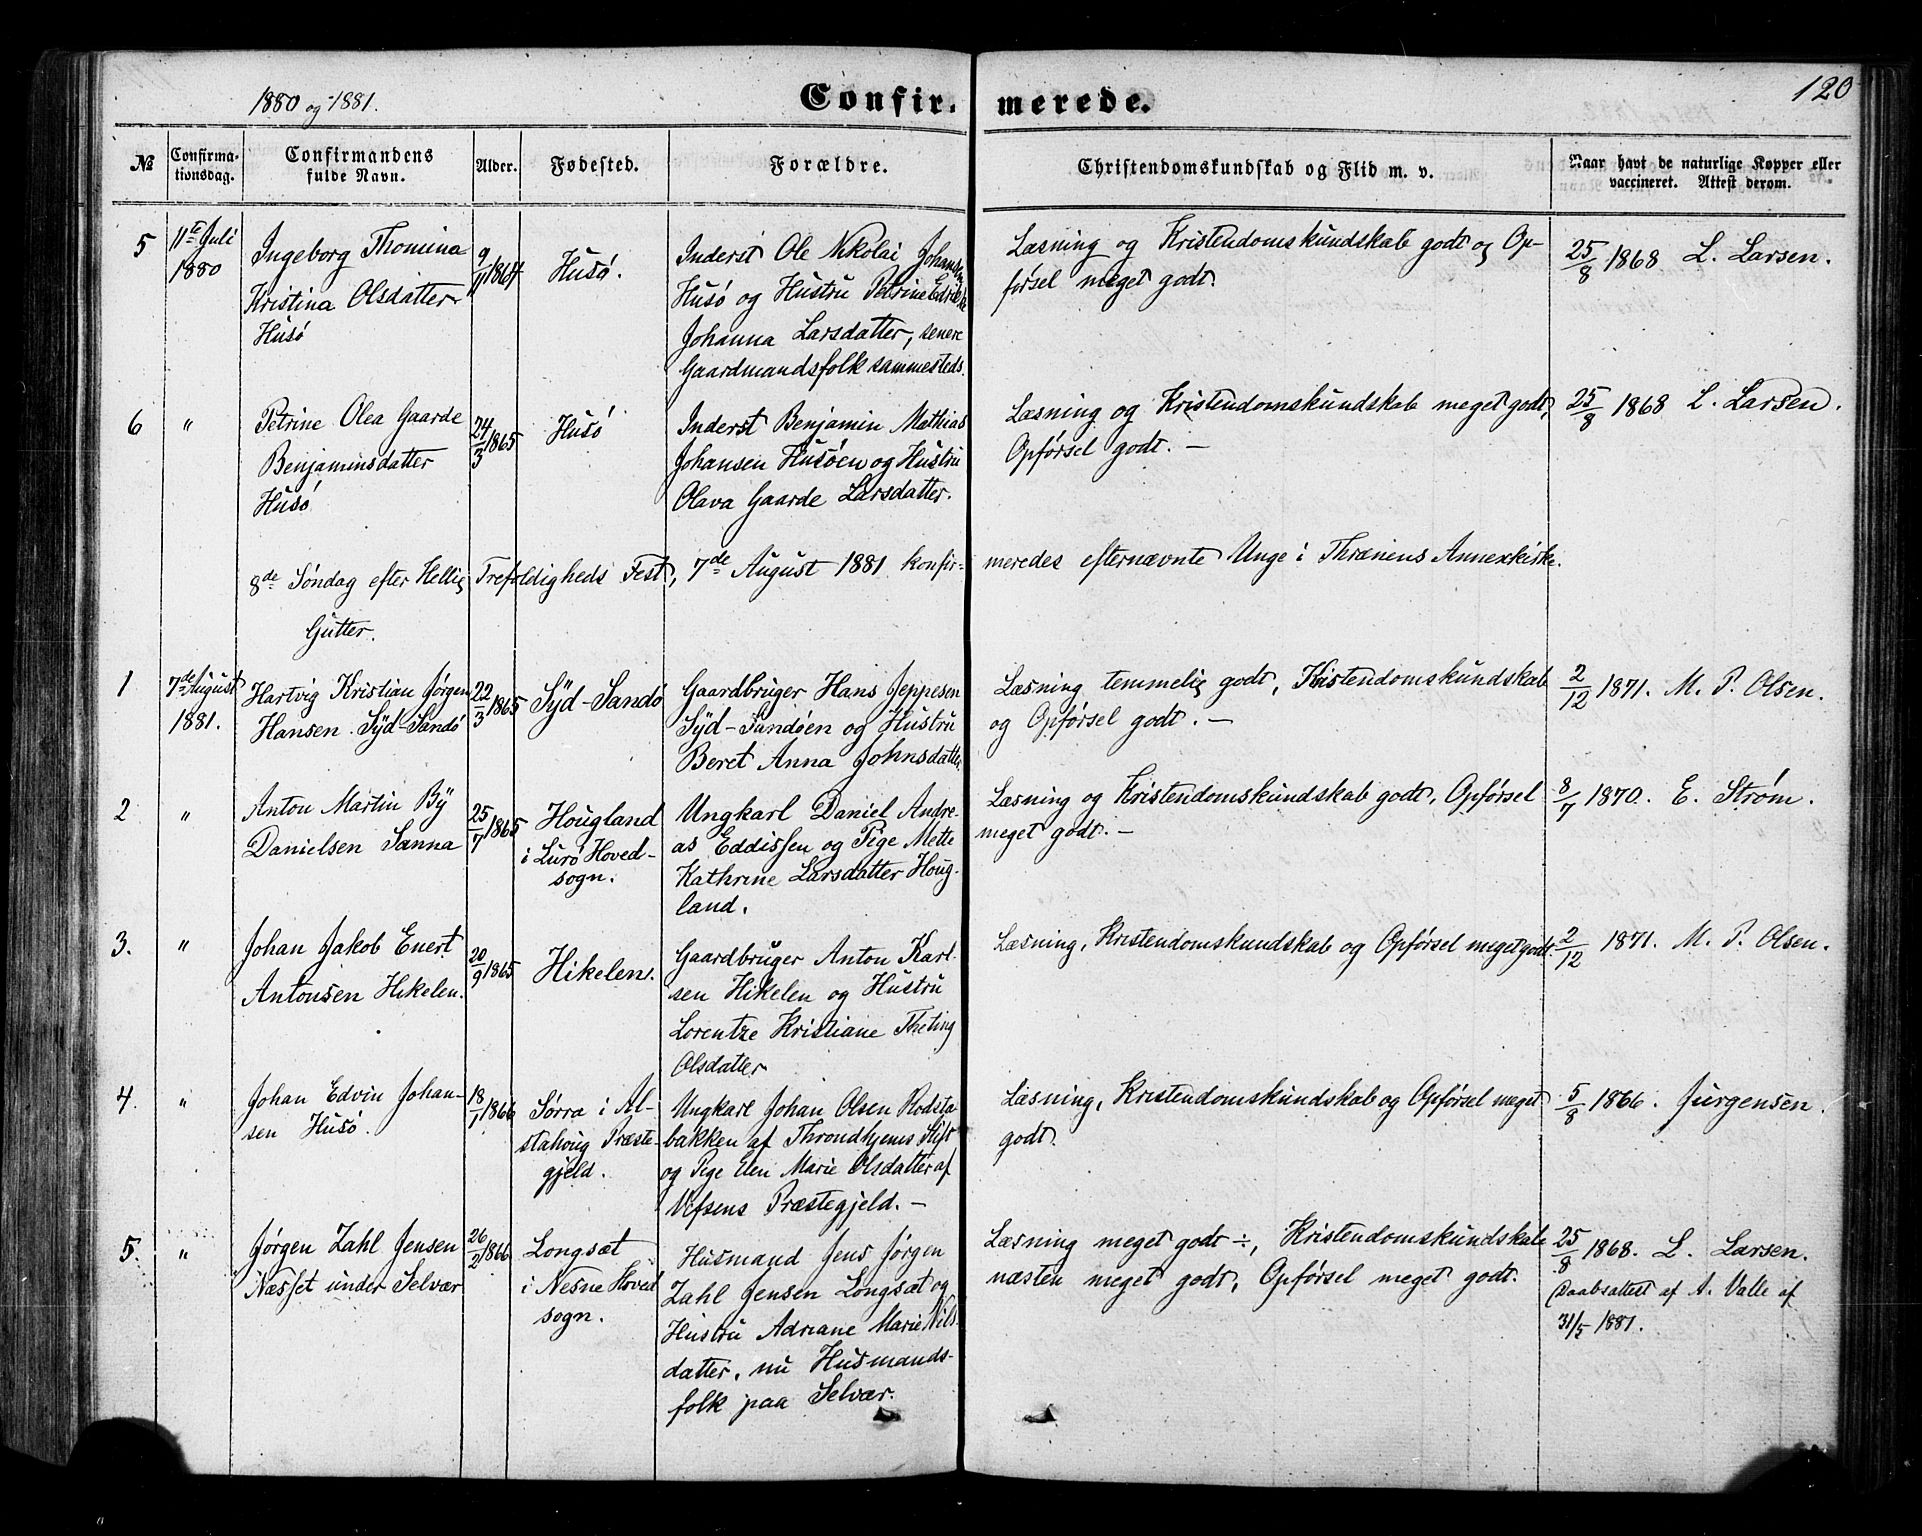 1880 og 1881.
Confirmerede.
120
№
Confirma-
tionsdag.
Confirmandens
fulde Navn.
Alder.
Fødested.
Forældre.
Christendomskundskab og Flid m. v.
Naar havt de naturlige Kopper eller
vaccineret. Attest derom.
5
11te Juli
1880
Ingeborg Thomina
Kristina Olsdatter
Husø
9/11 1864
Husø.
Inderst Ole Nikolai Johansen
Husø og Hustru Petrine
Johanna Larsdatter, senere
Gaardmandsfolk sammesteds.
Læsning og Kristendomskundskab godt og Op-
førsel meget godt.
25/8 1868 L. Larsen.
6
"
Petrine Olea Gaarde
Benjaminsdatter
Husø
24/3 1865
Husø
Inderst Benjamin Mathias
Johansen Husøen og Hustru
Olava Gaarde Larsdatter.
Læsning og Kristendomskundskab meget godt,
Opførsel godt. —
25/8 1868 L. Larsen.
8de Søndag efter Hellig Trefoldigheds Fest, 7de August 1881 konfir-
meredes efternævnte Unge i Thrænens Annexkirke.
Gutter.
1
7de August
1881.
Hartvig Kristian Jørgen
Hansen Syd-Sandø
22/3 1865
Syd-Sandø
Gaardbruger Hans Jeppesen
Syd-Sandøen og Hustru
Beret Anna Johnsdatter
Læsning temmelig godt, Kristendomskundskab
og Opførsel godt. —
2/12 1871. M. P. Olsen.
2
"
Anton Martin By
Danielsen Sanna
25/7 1865
Hougland
i Lurø Hoved-
sogn.
Ungkarl Daniel Andre-
as Eddissen og Pige Mette
Kathrine Larsdatter Houg-
land.
Læsning og Kristendomskundskab godt, Opførsel
meget godt. —
8/7 1870. E. Strøm.
3.
"
Johan Jakob Enert
Antonsen Hikelen.
20/9 1865
Hikelen.
Gaardbruger Anton Karl-
sen Hikelen og Hustru
Lorentze Kristiane Theting
Olsdatter
Læsning, Kristendomskundskab og Opførsel meget godt.
2/12 1871. M. P. Olsen.
4.
"
Johan Edvin Johan-
sen Husø.
18/1 1866
Sørra i Al-
stahoug Præste-
gjeld.
Ungkarl Johan Olsen Rodsta-
bakken af Throndhjems Stift
og Pige Elen Marie Olsdatter af
Vefsens Præstegjeld. —
Læsning, Kristendomskundskab og Opførsel meget
godt.
5/8 1866. Jürgensen.
5.
"
Jørgen Zahl Jensen
Næsset under Selvær
26/2 1866
Longsæt
i Nesne Hoved
sogn.
Husmand Jens Jørgen
Zahl Jensen Longsæt og
Hustru Adriane Marie Nils-
datter, nu Husmands-
folk paa Selvær.
Læsning meget godt ÷, Kristendomskundskab
næsten meget godt, Opførsel meget godt.
25/8 1868. L. Larsen.
Daabsattest af A. Valle af
31/5 1881.